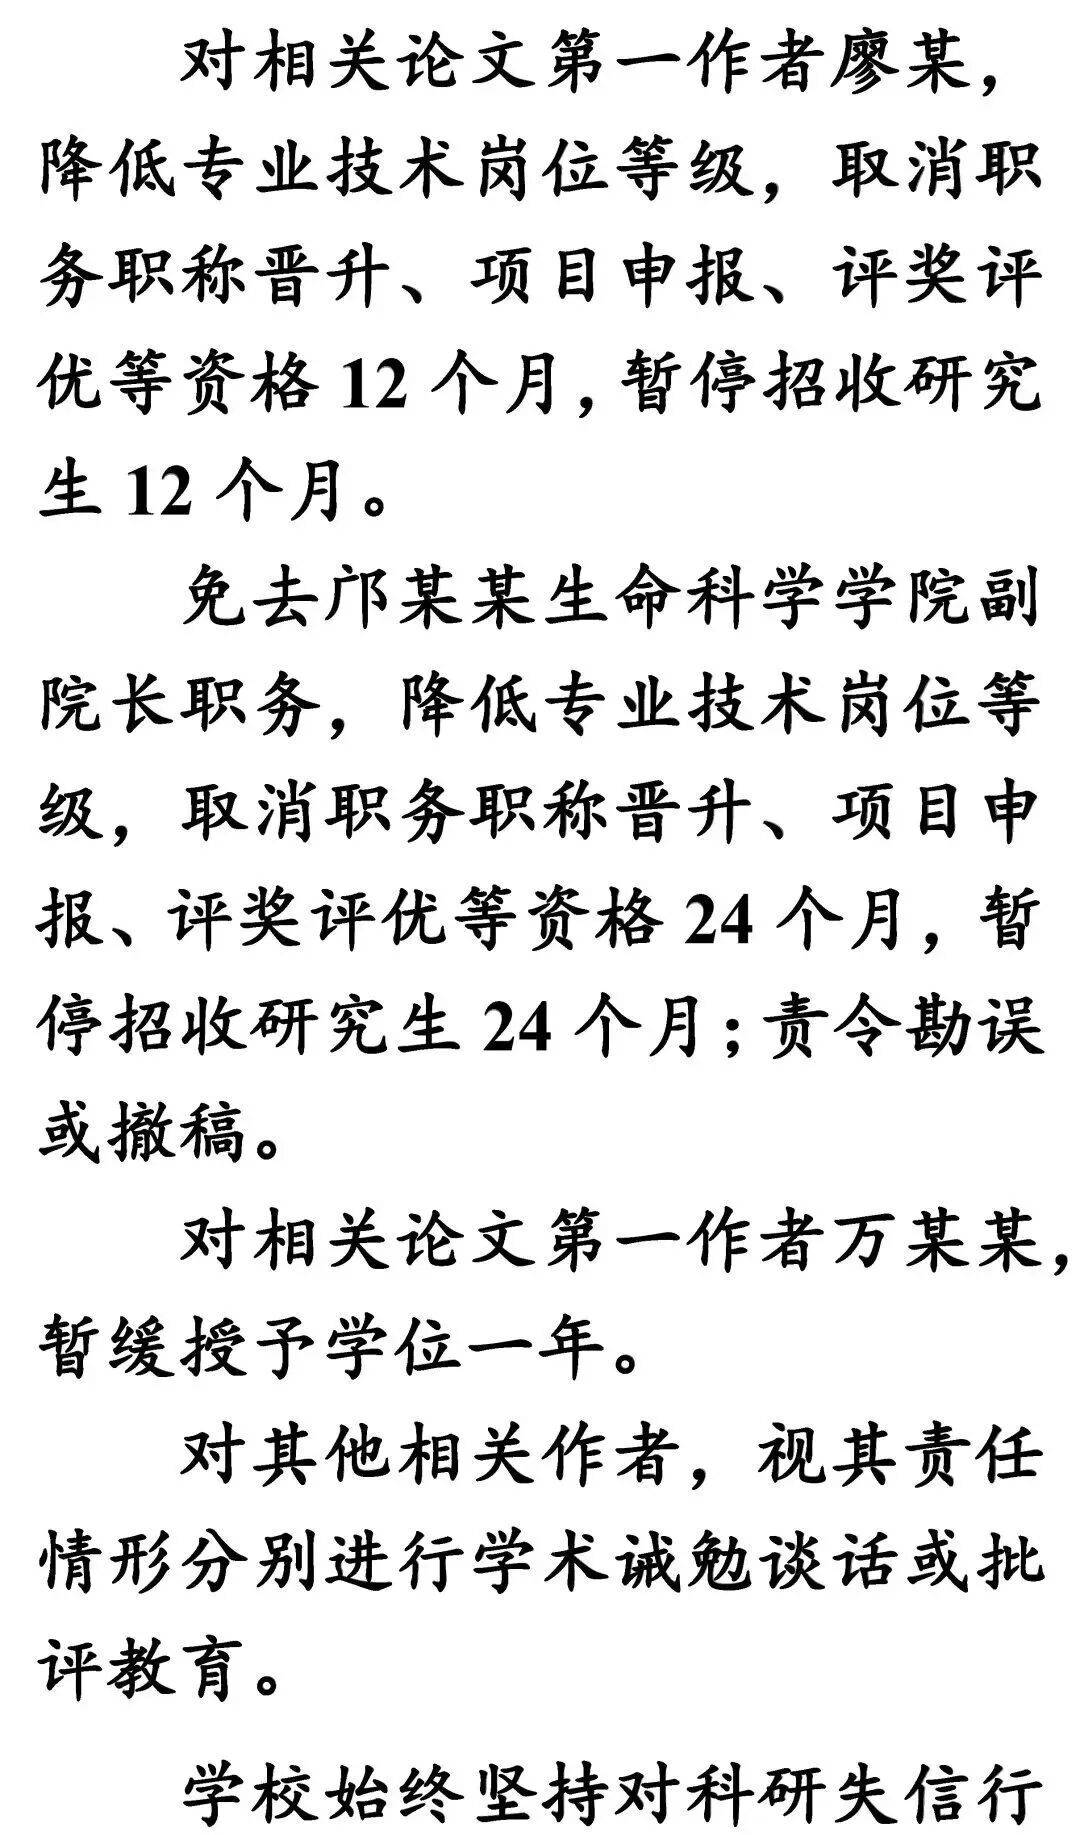 对相关论文第一作者廖某，
降低专业技术岗位等级，取消职
务职称晋升、项目申报、评奖评
优等资格12个月，暂停招收研究
生12个月。
免去邝某某生命科学学院副
院长职务，降低专业技术岗位等
级，取消职务职称晋升、项目申
报、评奖评优等资格24个月，暂
停招收研究生24个月；责令勘误
或撤稿。
对相关论文第一作者万某某，
暂缓授予学位一年。
对其他相关作者，视其责任
情形分别进行学术诫勉谈话或批
评教育。
学校始终坚持对科研失信行